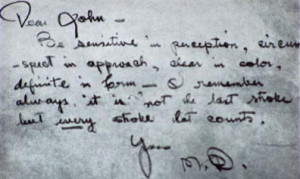 Dear John –
Be sensitive in perception, circum
-spect in approach, clear in color,
definite in form – & remember
always, it is not the last stroke
but every stroke that counts.
Your